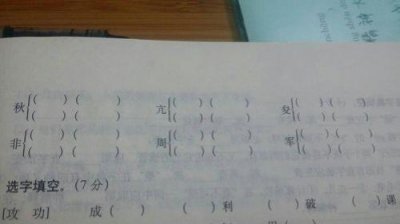 秋 ( ) ( ) 亢 ( ) ( ) 殳 ( ) ( )
( ) ( ) ( ) ( ) ( ) ( )
非 ( ) ( ) 周 ( ) ( ) 军 ( ) ( )
( ) ( ) ( ) ( ) ( ) ( )
选字填空。(7分)
[攻 功] 成( ) ( )利 ( )破 ( )课